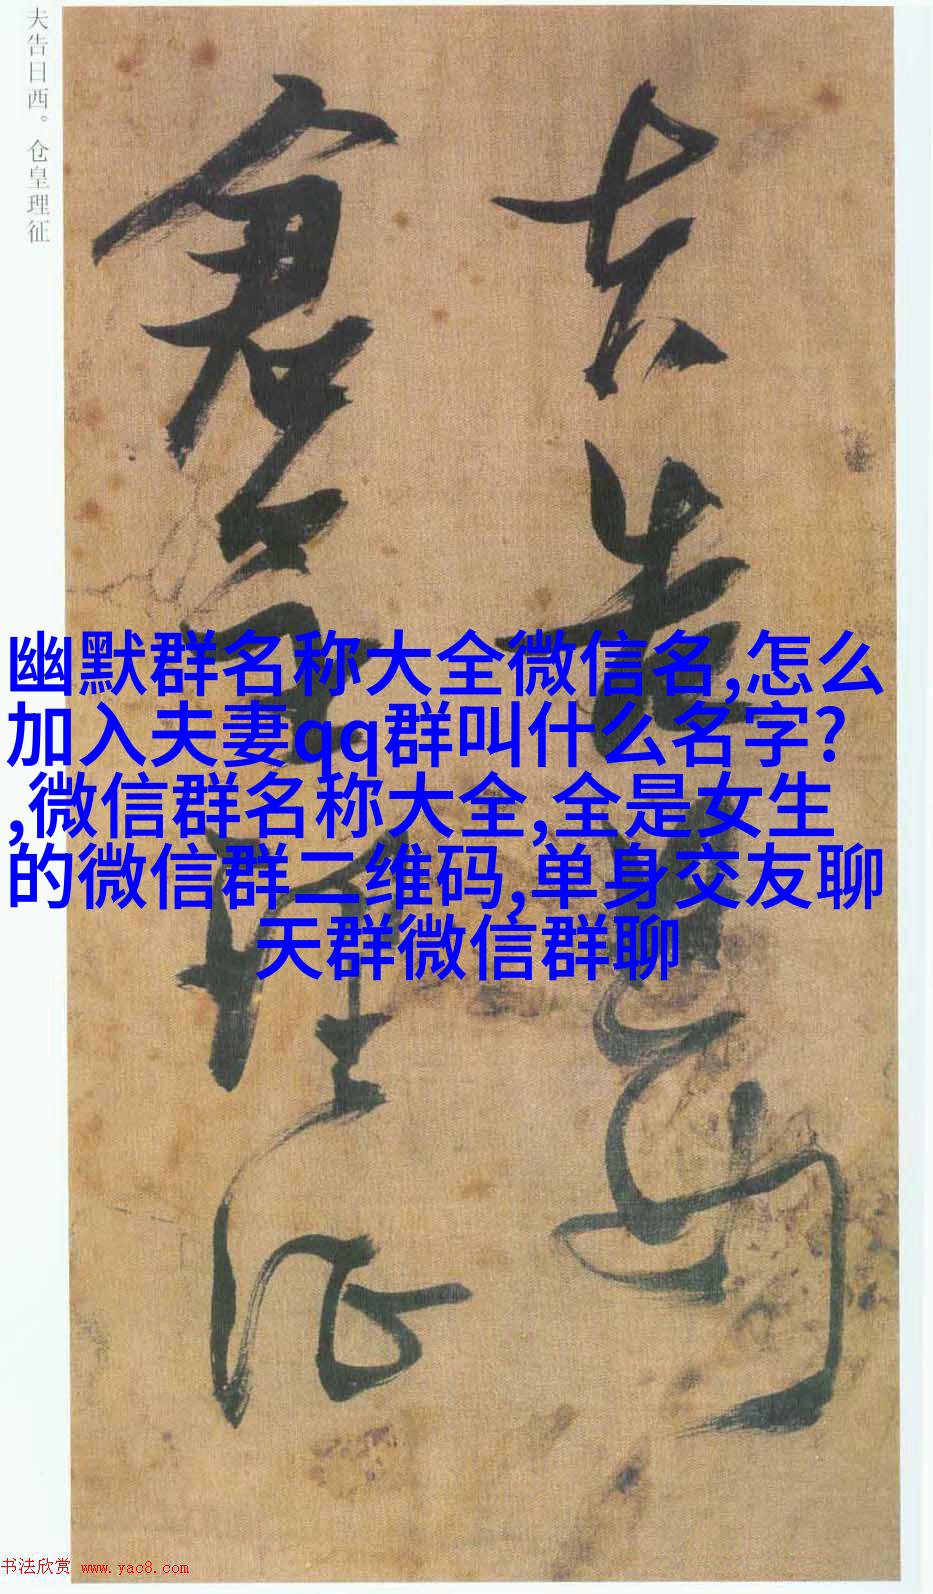 夫告日西。仓皇理征
幽默群名称大全微信名,怎么
加入夫妻qq群叫什么名字?
,微信群名称大全,全是女生
的微信群二维码,单身交友聊
天群微信群聊
书法欣赏 www.yac8.com